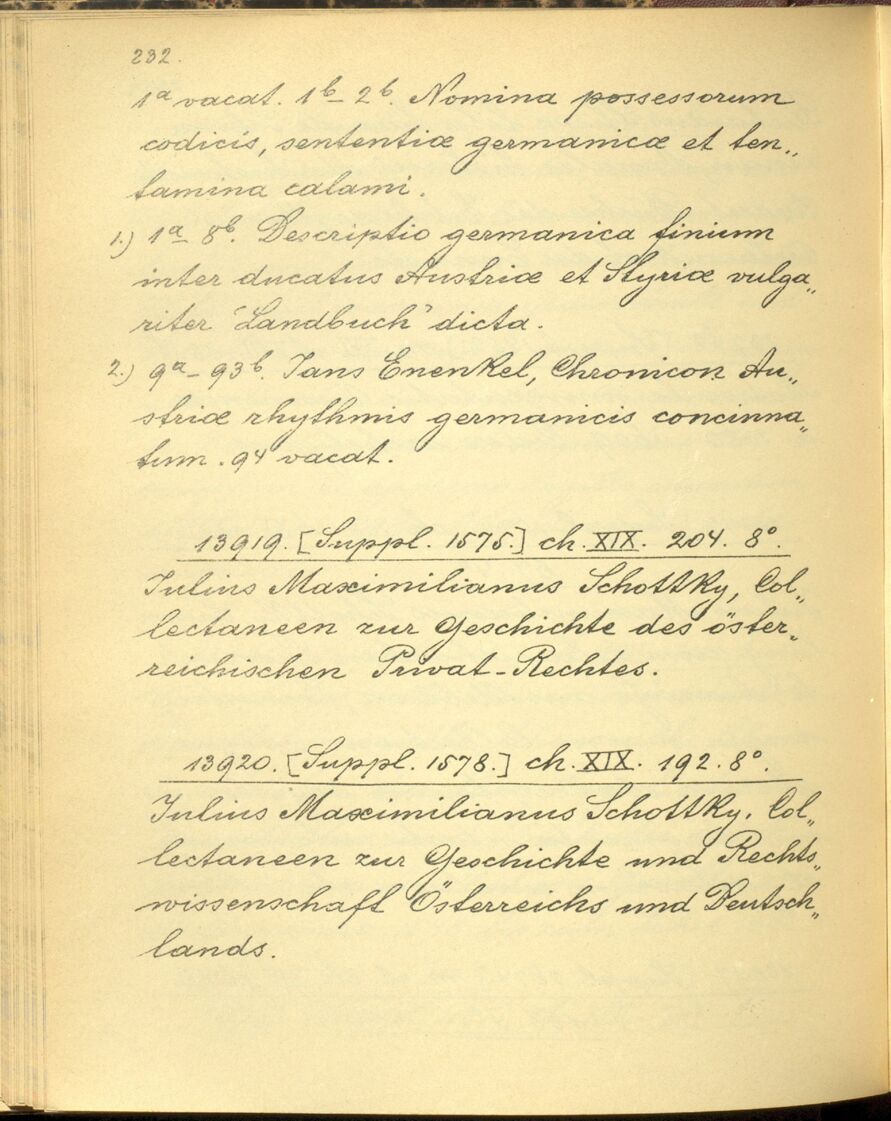 232.
1ᵃ vacat. 1ᵇ- 2ᵇ. Nomina possessorum
codicis, sententiæ germanicæ et ten„
tamina calami.
1.) 1ᵃ- 8ᵇ. Descriptio germanica finium
inter ducatus Austriæ et Styriæ vulga„
riter "Landbuch" dicta.
2.) 9ᵃ- 93ᵇ. Jans Enenkel, Chronicon Au„
striæ rhythmis germanicis concinna„
tum. 94 vacat.
13919. [Suppl. 1575.] ch. XIX. 204. 8°.
Julius Maximilianus Schottky, Col„
lectaneen zur Geschichte des öster„
reichischen Privat-Rechtes.
13920. [Suppl. 1578.] ch. XIX. 192. 8°.
Julius Maximilianus Schottky. Col„
lectaneen zur Geschichte und Rechts„
wissenschaft Österreichs und Deutsch„
lands.